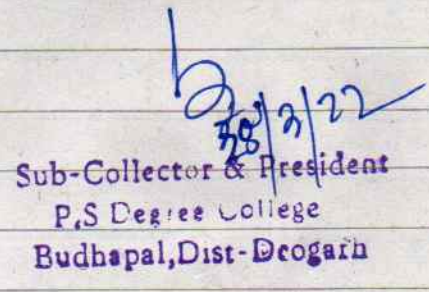 28/3/22
Sub-Collector & President
P.S Degree College
Budhapal,Dist-Deogarh